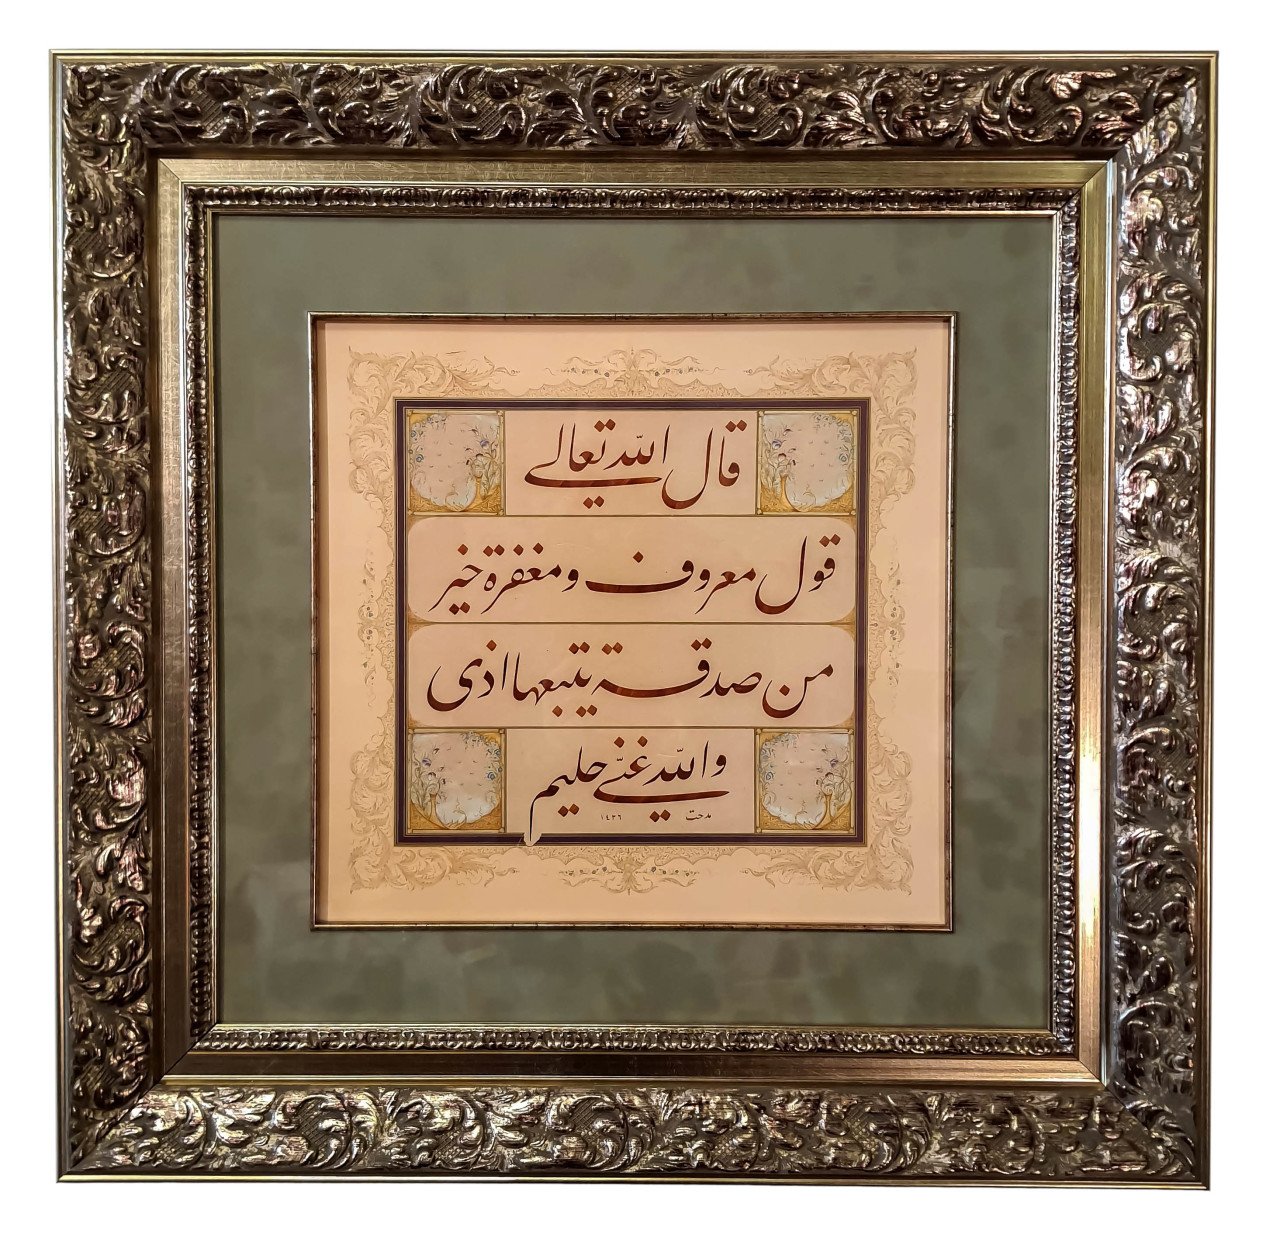 قال الله تعالى
قول معروف ومغفرة خير
من صدقة يتبعها اذى
والله غني حليم
مدحت ١٤٣٦